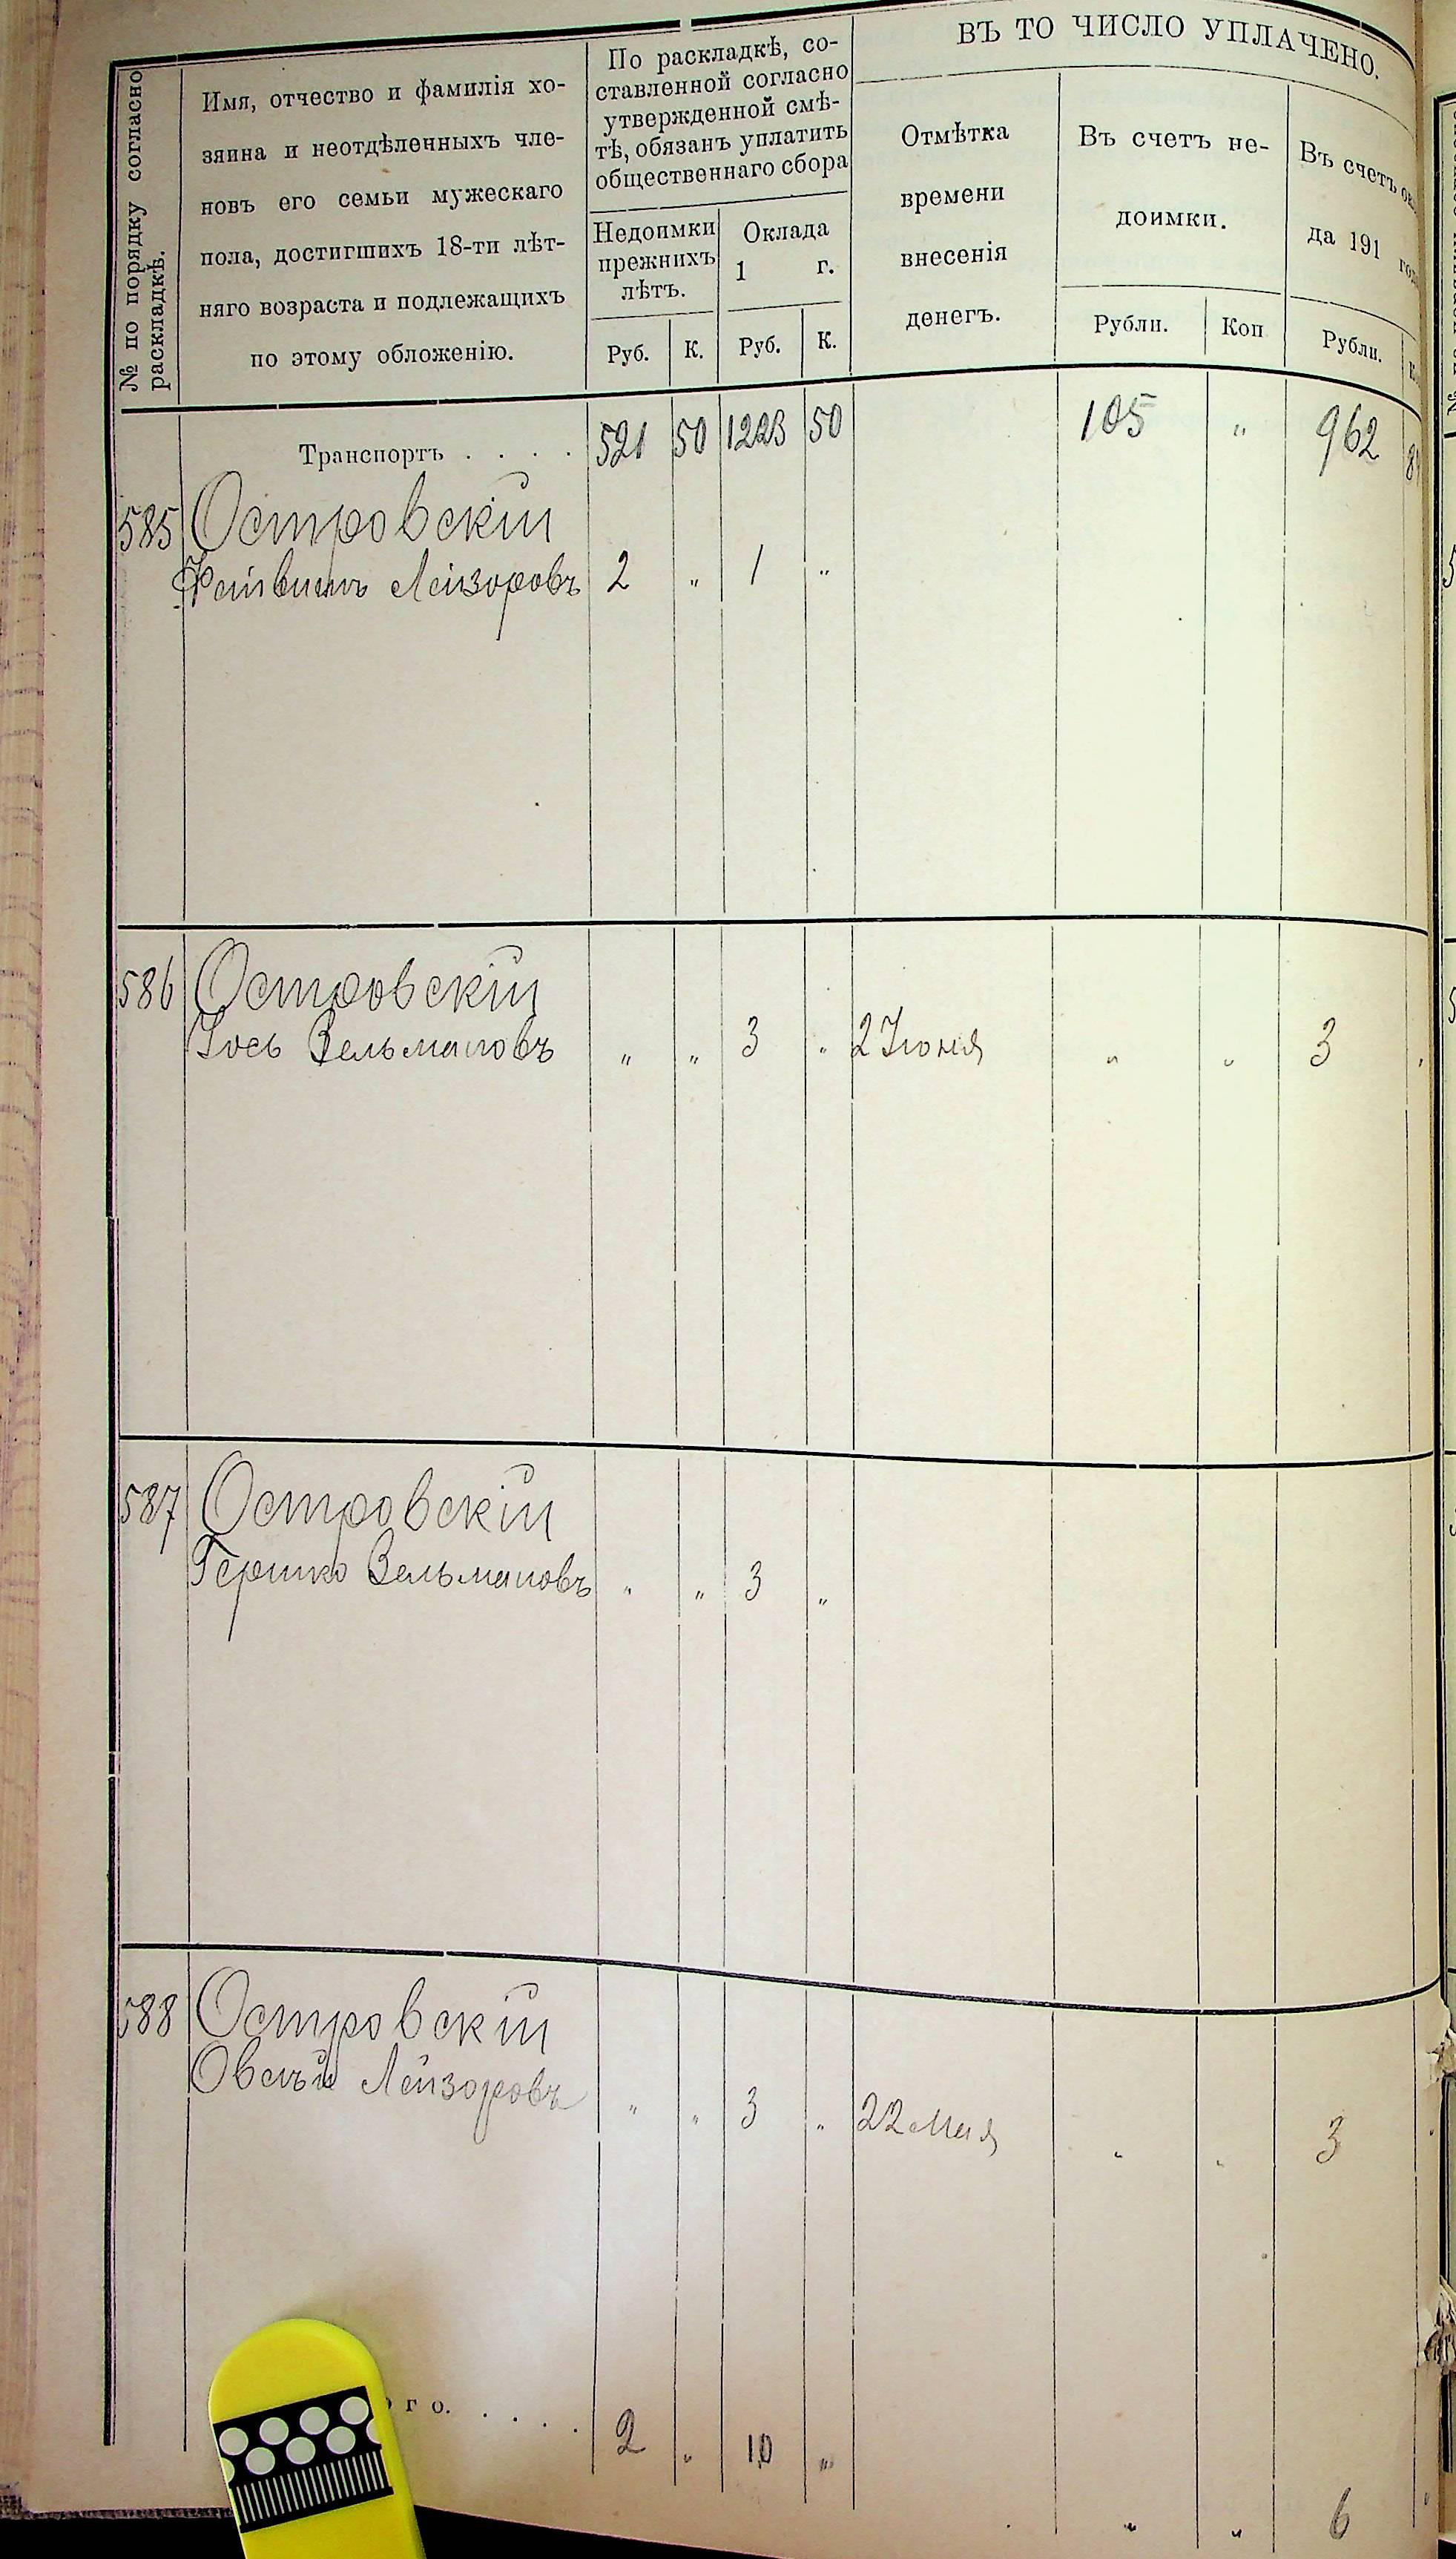 ВЪ ТО ЧИСЛО УПЛАЧЕНО.
№ по порядку согласно
раскладкѣ.
Имя, отчество и фамилія хо-
зяина и неотдѣленныхъ чле-
новъ его семьи мужескаго
пола, достигшихъ 18-ти лѣт-
няго возраста и подлежащихъ
по этому обложенію.
По раскладкѣ, со-
ставленной согласно
утвержденной смѣ-
тѣ, обязанъ уплатить
общественнаго сбора
Недоимки
прежнихъ
лѣтъ.
Оклада
1 г.
Руб. К. Руб. К.
Отмѣтка
времени
внесенія
денегъ.
Въ счетъ не-
доимки.
Рубли. Коп
Въ счетъ
да 191
Рубли.
Транспортъ . . . . 521 50 1223 50 105 „ 962
585 Островскій
Лейзоровъ 2 „ 1 „
586 Островскій
Іось Зельмановъ „ „ 3 „ 2 Іюня „ „ 3
587 Островскій
Гершко Зельмановъ „ „ 3 „
588 Островскій
Овсѣй Лейзоровъ „ „ 3 „ 22 Мая „ „ 3
ого. . . . . 2 „ 10 „
„ „ 6